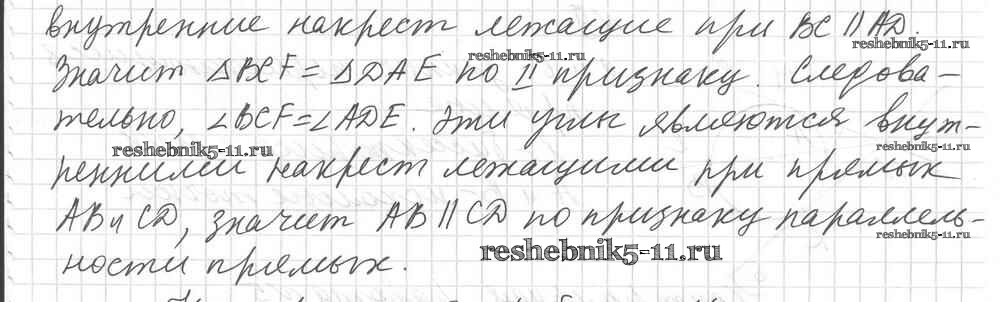 внутренние накрест лежащие при BC || AD.
reshebnik5-11.ru
reshebnik5-11.ru
Значит △BCF = △DAE по II признаку. Следова-
тельно, ∠BCF = ∠ADE. Эти углы являются внут-
reshebnik5-11.ru
reshebnik5-11.ru
ренними накрест лежащими при прямых
AB и CD, значит AB || CD по признаку параллель-
reshebnik5-11.ru
ности прямых.
reshebnik5-11.ru